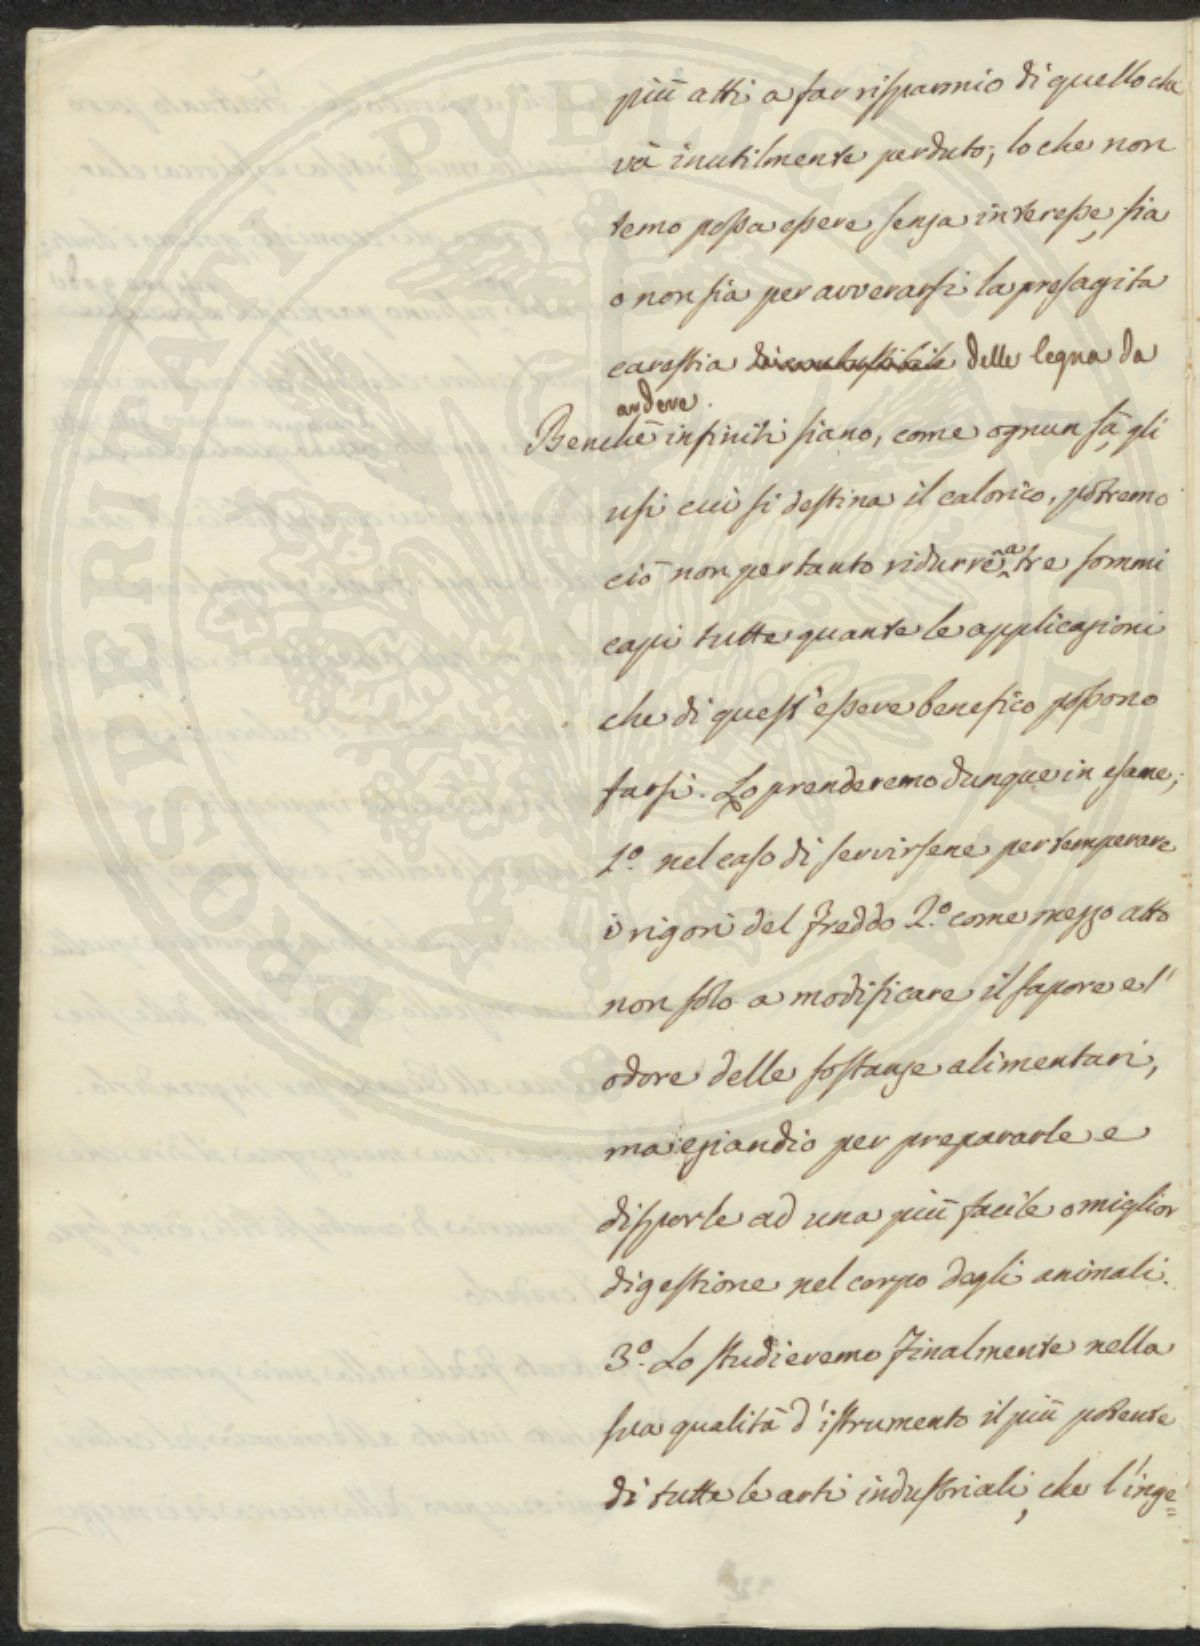 PROSPERITATI PUBLICAE AUGENDAE
più atti a far risparmio di quello che
và inutilmente perduto; lo che non
temo possa essere senza interesse, sia
o non sia per avverarsi la presagita
carestia di combustibile delle legna da
ardere.
Benchè infiniti siano, come ognun sà, gli
usi cui si destina il calorico, potremo
ciò non pertanto ridurre a tre sommi
capi tutte quante le applicazioni
che di quest'essere benefico possono
farsi. Lo prenderemo dunque in esame;
1.° nel caso di servirsene per temperare
i rigori del freddo 2.° come mezzo atto
non solo a modificare il sapore e l'
odore delle sostanze alimentari,
ma eziandio per prepararle e
disporle ad una più facile o miglior
digestione nel corpo degli animali.
3.° Lo studieremo finalmente nella
sua qualità d'istrumento il più potente
di tutte le arti industriali, che l'inge=